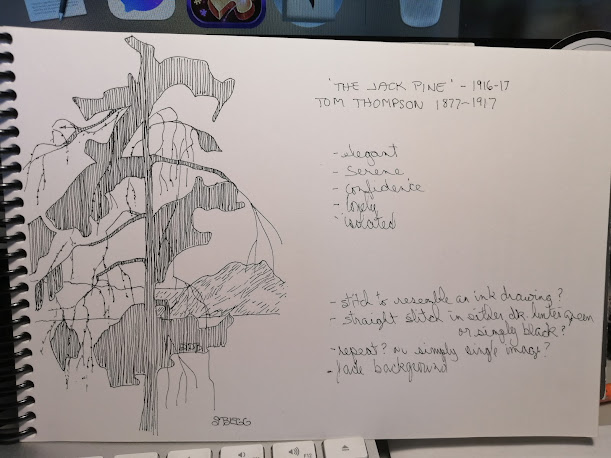 'THE JACK PINE' - 1916-17
TOM THOMPSON 1877-1917
- elegant
- Serene
- confidence
- lonely
- isolated
- stitch to resemble an ink drawing?
- straight stitch in either dk. winter green
or simply black?
- repeat? or simply single image?
- fade background